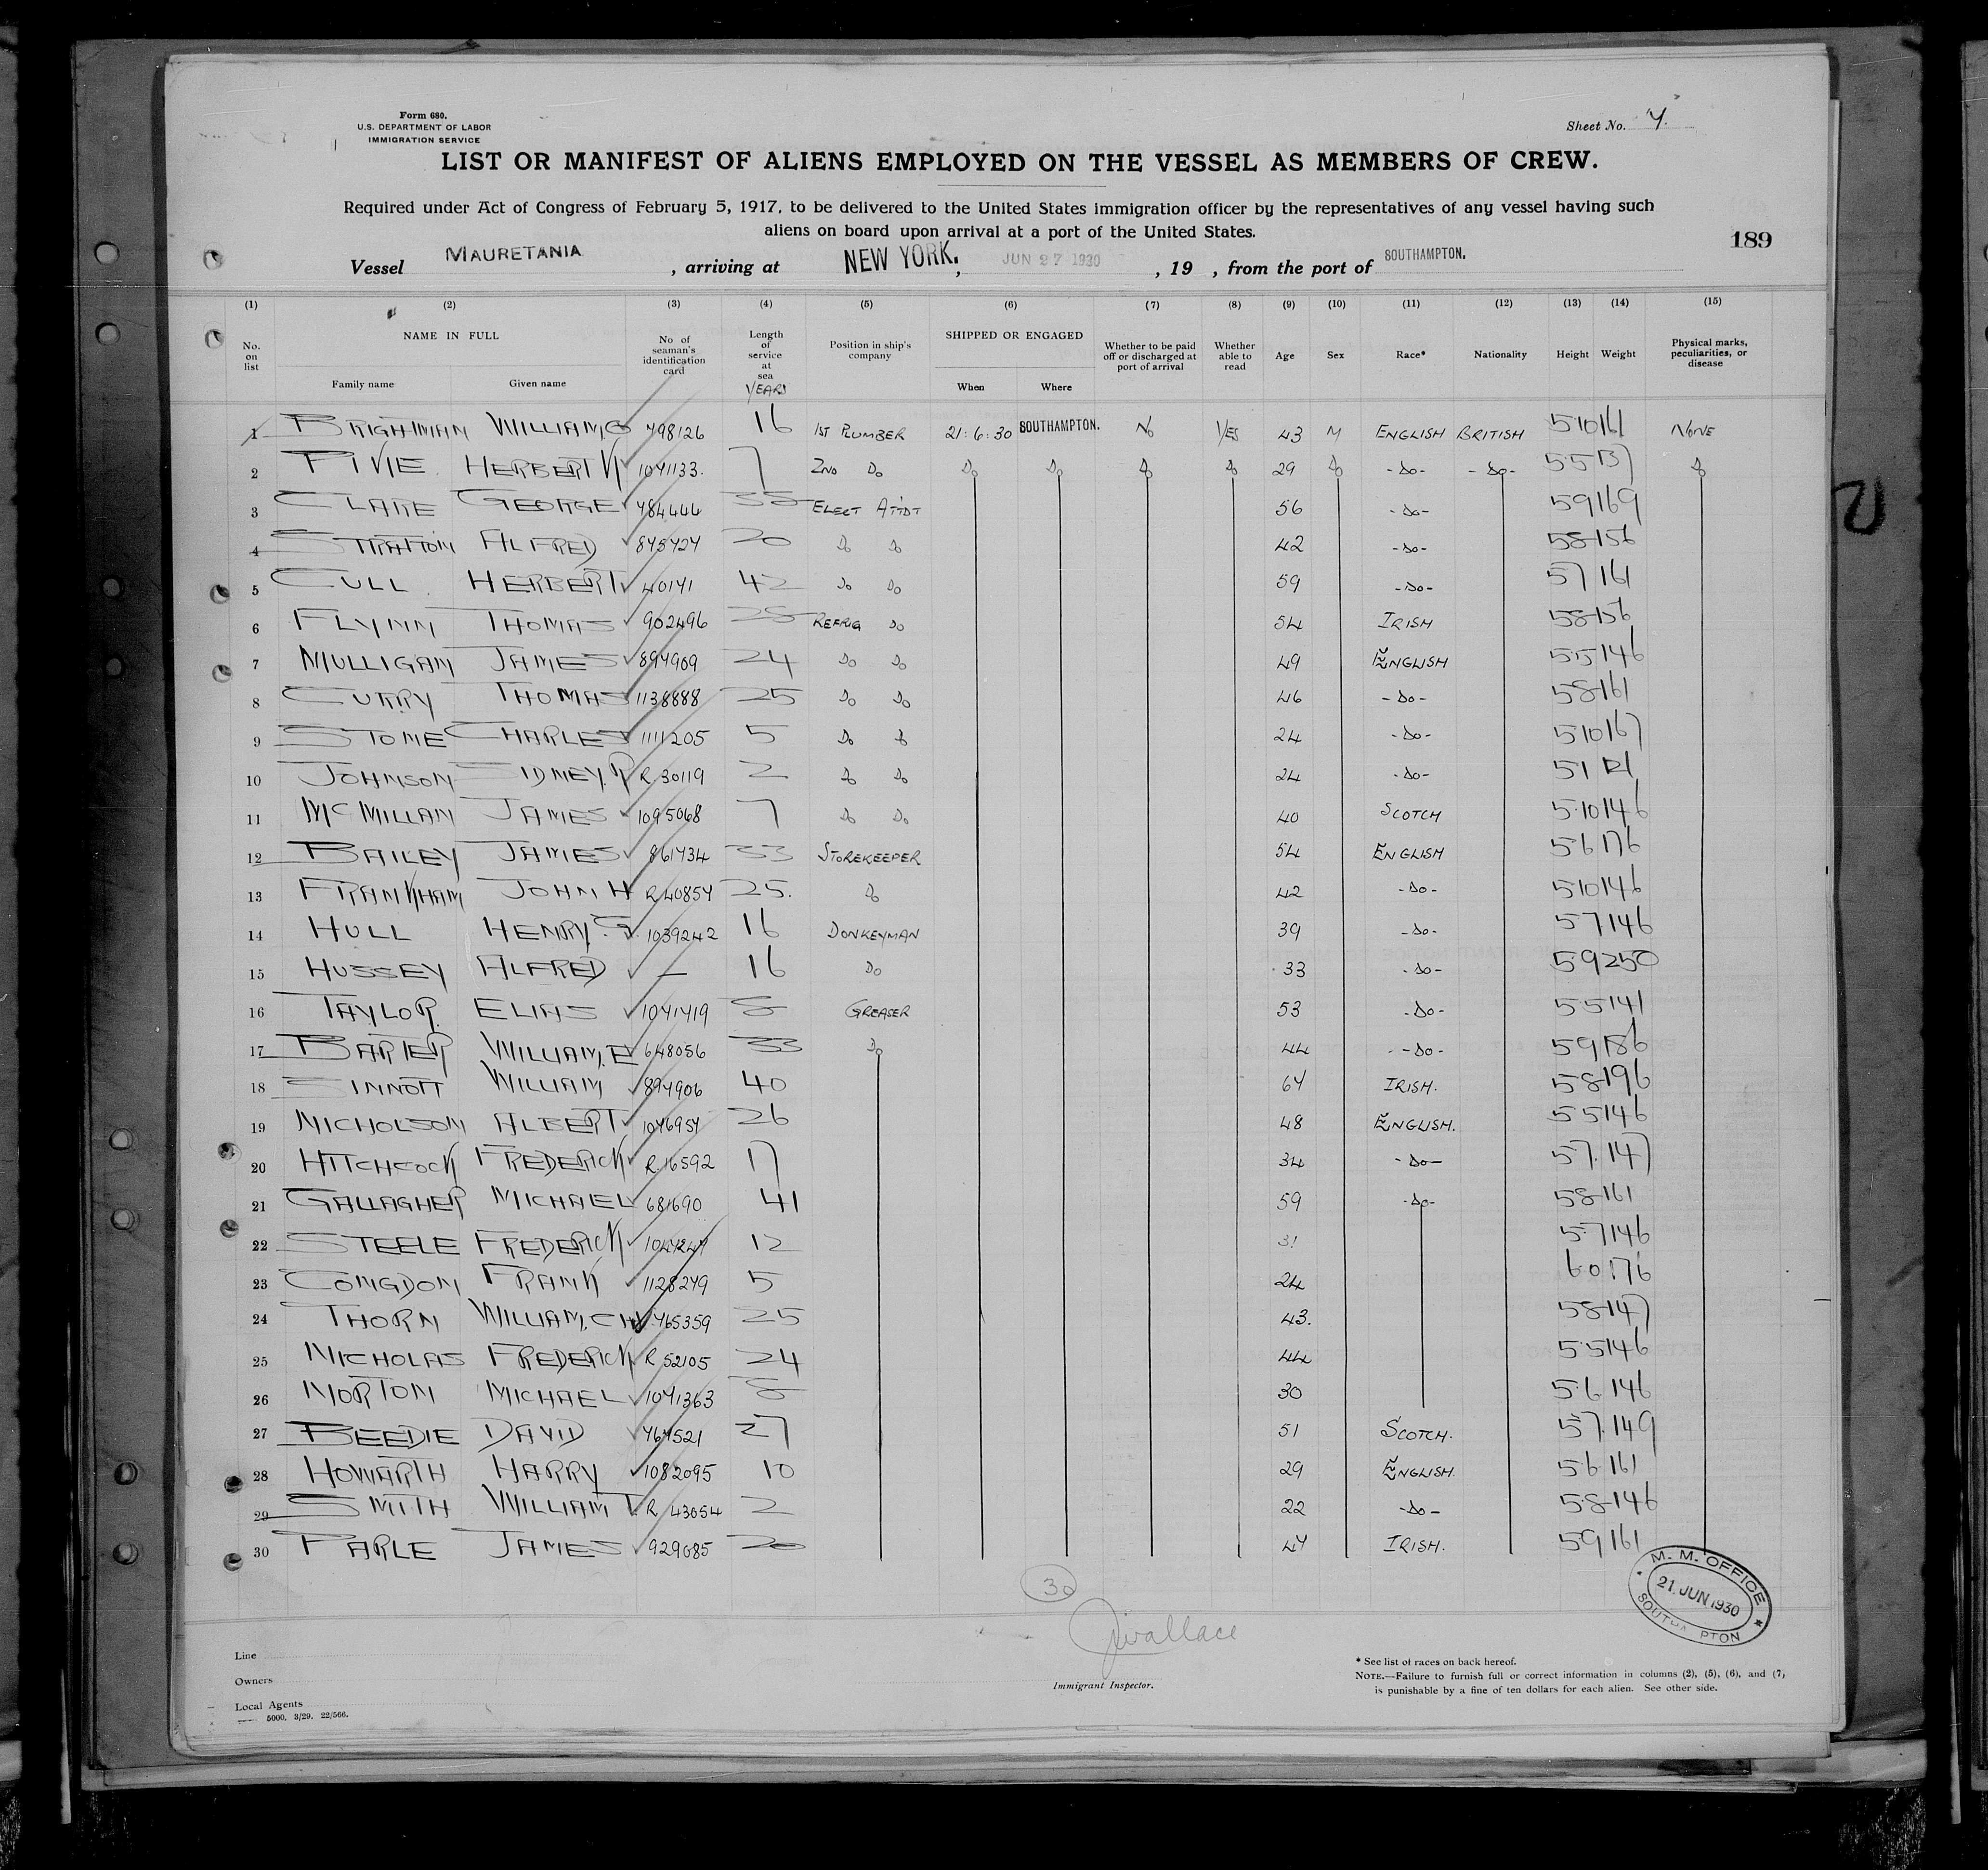 Form 680.
U.S. DEPARTMENT OF LABOR
IMMIGRATION SERVICE
Sheet No. 7.
LIST OR MANIFEST OF ALIENS EMPLOYED ON THE VESSEL AS MEMBERS OF CREW.
Required under Act of Congress of February 5, 1917, to be delivered to the United States immigration officer by the representatives of any vessel having such
aliens on board upon arrival at a port of the United States.
189
Vessel MAURETANIA, arriving at NEW YORK., JUN 27 1930, 19 , from the port of SOUTHAMPTON.
(1) (2) (3) (4) (5) (6) (7) (8) (9) (10) (11) (12) (13) (14) (15)
No. on list NAME IN FULL Family name Given name No of seaman's identification card Length of service at sea YEARS Position in ship's company SHIPPED OR ENGAGED When Where Whether to be paid off or discharged at port of arrival Whether able to read Age Sex Race* Nationality Height Weight Physical marks, peculiarities, or disease
1 BRIGHTMAN WILLIAM, G 798126 16 1ST PLUMBER 21.6.30 SOUTHAMPTON. No YES 43 M ENGLISH BRITISH 5 10 161 NONE
2 HERBERT 1071133. 7 2ND Do Do Do Do Do 29 Do -Do- -Do- 5 5 137 Do
3 CLARE GEORGE 784444 35 ELECT ATTDT 56 -Do- 5 9 169
4 STRATTON ALFRED 20 Do Do 42 -Do- 5 8 156
5 CULL HERBERT 42 Do Do 59 -Do- 5 7 161
6 FLYNN THOMAS 902496 25 REFRIG Do 54 IRISH 5 8 156
7 MULLIGAN JAMES 894909 24 Do Do 49 ENGLISH 5 5 146
8 CURRY THOMAS 1138888 25 Do Do 46 -Do- 5 8 161
9 STONE CHARLES 1111205 5 Do Do 24 -Do- 5 10 167
10 JOHNSON SIDNEY. R R 30119 2 Do Do 24 -Do- 5 1 121
11 MCMILLAN JAMES 1095068 7 Do Do 40 SCOTCH 5 10 146
12 BAILEY JAMES 861734 33 STOREKEEPER 54 ENGLISH 5 6 176
13 FRANKHAM JOHN H R 40857 25. Do 42 -Do- 5 10 146
14 HULL HENRY. G. 1039242 16 DONKEYMAN 39 -Do- 5 7 146
15 HUSSEY ALFRED — 16 Do 33 -Do- 5 9 250
16 TAYLOR ELIAS 1071719 8 GREASER 53 -Do- 5 5 141
17 WILLIAM, E 648056 33 Do 44 -Do- 5 9 186
18 SINNOTT WILLIAM 894906 40 67 IRISH. 5 8 196
19 NICHOLSON ALBERT 1076957 26 48 ENGLISH. 5 5 146
20 HITCHCOCK FREDERICK R. 16592 17 34 -Do- 5 7. 147
21 GALLAGHER MICHAEL 681690 41 59 -Do- 5 8 161
22 STEELE FREDERICK 12 31 5 7 146
23 CONGDON FRANK 1128279 5 24 6 0 176
24 THORN WILLIAM. C H 765359 25 43. 5 8 147
25 NICHOLAS FREDERICK R 52105 24 44 5 5 146
26 NORTON MICHAEL 1071363 8 30 5 6 146
27 BEEDIE DAVID 27 51 SCOTCH. 5 7. 149
28 HOWARTH HARRY 1082095 10 29 ENGLISH. 5 6 161
29 SMITH WILLIAM T. R 43054 2 22 -Do- 5 8 146
30 PARLE JAMES 929085 20 47 IRISH. 5 9 161
30
M. M. OFFICE
21 JUN 1930
SOUTHAMPTON
J Wallace
Immigrant Inspector.
Line
Owners
Local Agents
5000. 3/29. 22/566.
* See list of races on back hereof.
NOTE.—Failure to furnish full or correct information in columns (2), (5), (6), and (7,
is punishable by a fine of ten dollars for each alien. See other side.